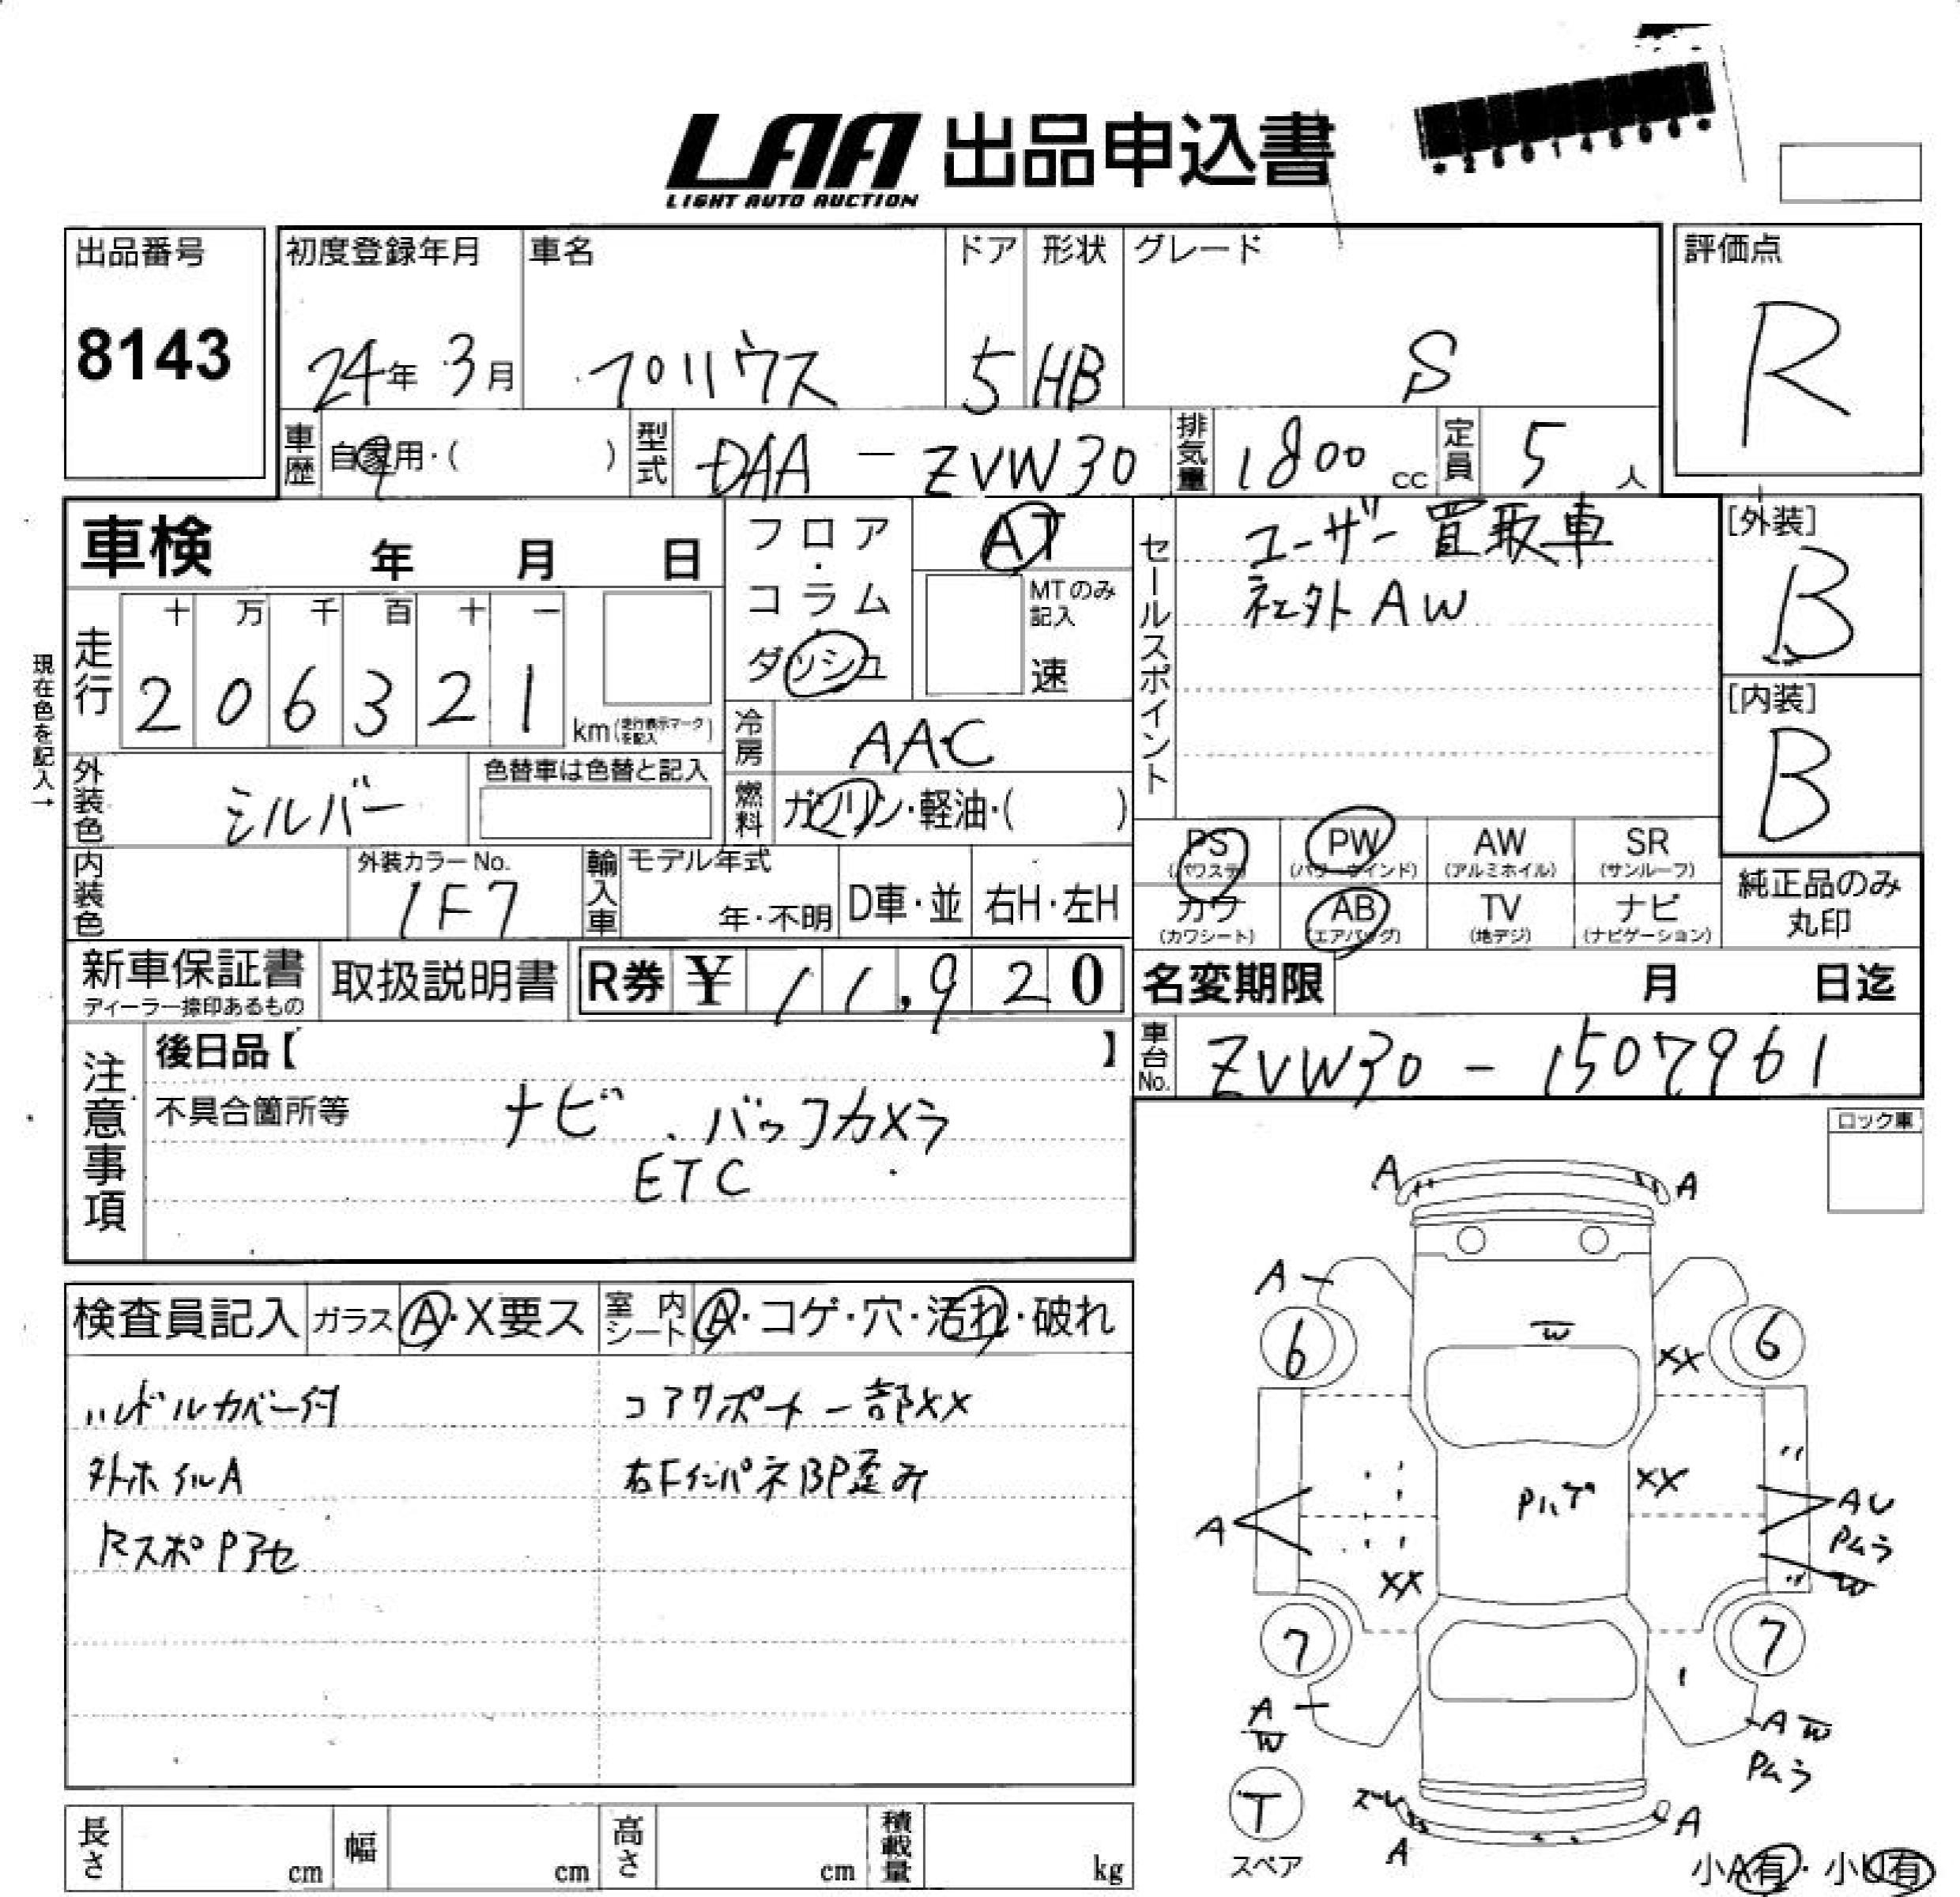 LAA 出品申込書
LIGHT AUTO AUCTION
出品番号
8143
初度登録年月
24年 3月
車名
プリウス
ドア
5
形状
HB
グレード
S
評価点
R
車歴 自家用・( )
型式 DAA - ZVW30
排気量 1800 cc
定員 5 人
車検 年 月 日
フロア・コラム・ダッシュ
AT
MTのみ記入
速
セールスポイント
ユーザー買取車
社外AW
[外装]
B
[内装]
B
現在色を記入→
走行
十 万 千 百 十 一
2 0 6 3 2 1 km (走行表示マークを記入)
冷房 AAC
外装色 シルバー
色替車は色替と記入
燃料 ガソリン・軽油・( )
PS (パワステ)
PW (パワーウインド)
AW (アルミホイル)
SR (サンルーフ)
カワ (カワシート)
AB (エアバッグ)
TV (地デジ)
ナビ (ナビゲーション)
純正品のみ
丸印
内装色
外装カラーNo.
1F7
輸入車 モデル年式
年・不明
D車・並
右H・左H
新車保証書
ディーラー捺印あるもの
取扱説明書
R券 ¥ 11,920
名変期限 月 日迄
車台No. ZVW30 - 1507961
注意事項
後日品【 】
不具合箇所等
ナビ . バックカメラ
ETC
ロック車
検査員記入
ガラス A・X要ス
室内シート A・コゲ・穴・汚れ・破れ
ハンドルカバー付
コアサポート一部XX
外ホイルA
右FインパネBP歪み
RスポPアセ
A A
A
6 6
W
XX
Pハゲ
XX
A
XX
〃
AU
Pムラ
〃
W
7 7
A
W
A W
Pムラ
T
スペア
ズレ
A
A
小A有・小U有
長さ cm
幅 cm
高さ cm
積載量 kg